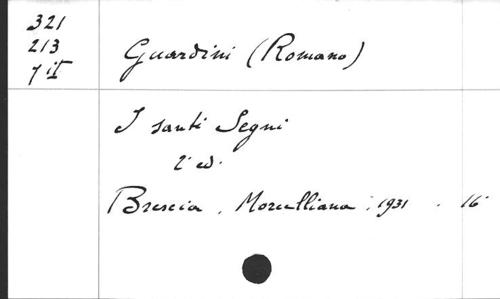 321
213
7 II
Guardini (Romano)
I santi Segni
2ª ed.
Brescia. Morcelliana. 1931. 16°